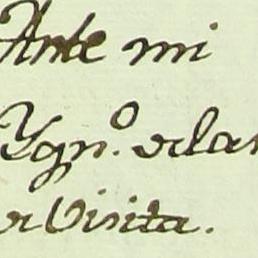 Ante mi
Ygn.º de la
de Visita.